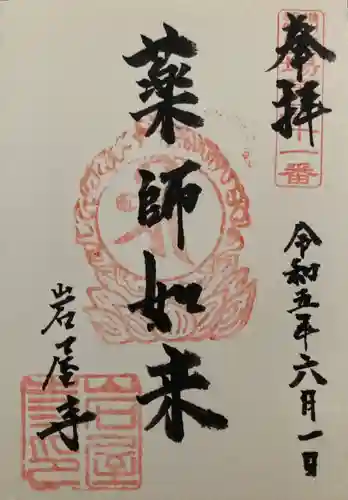 奉拝
十一番
令和五年六月一日
薬師如来
岩屋寺